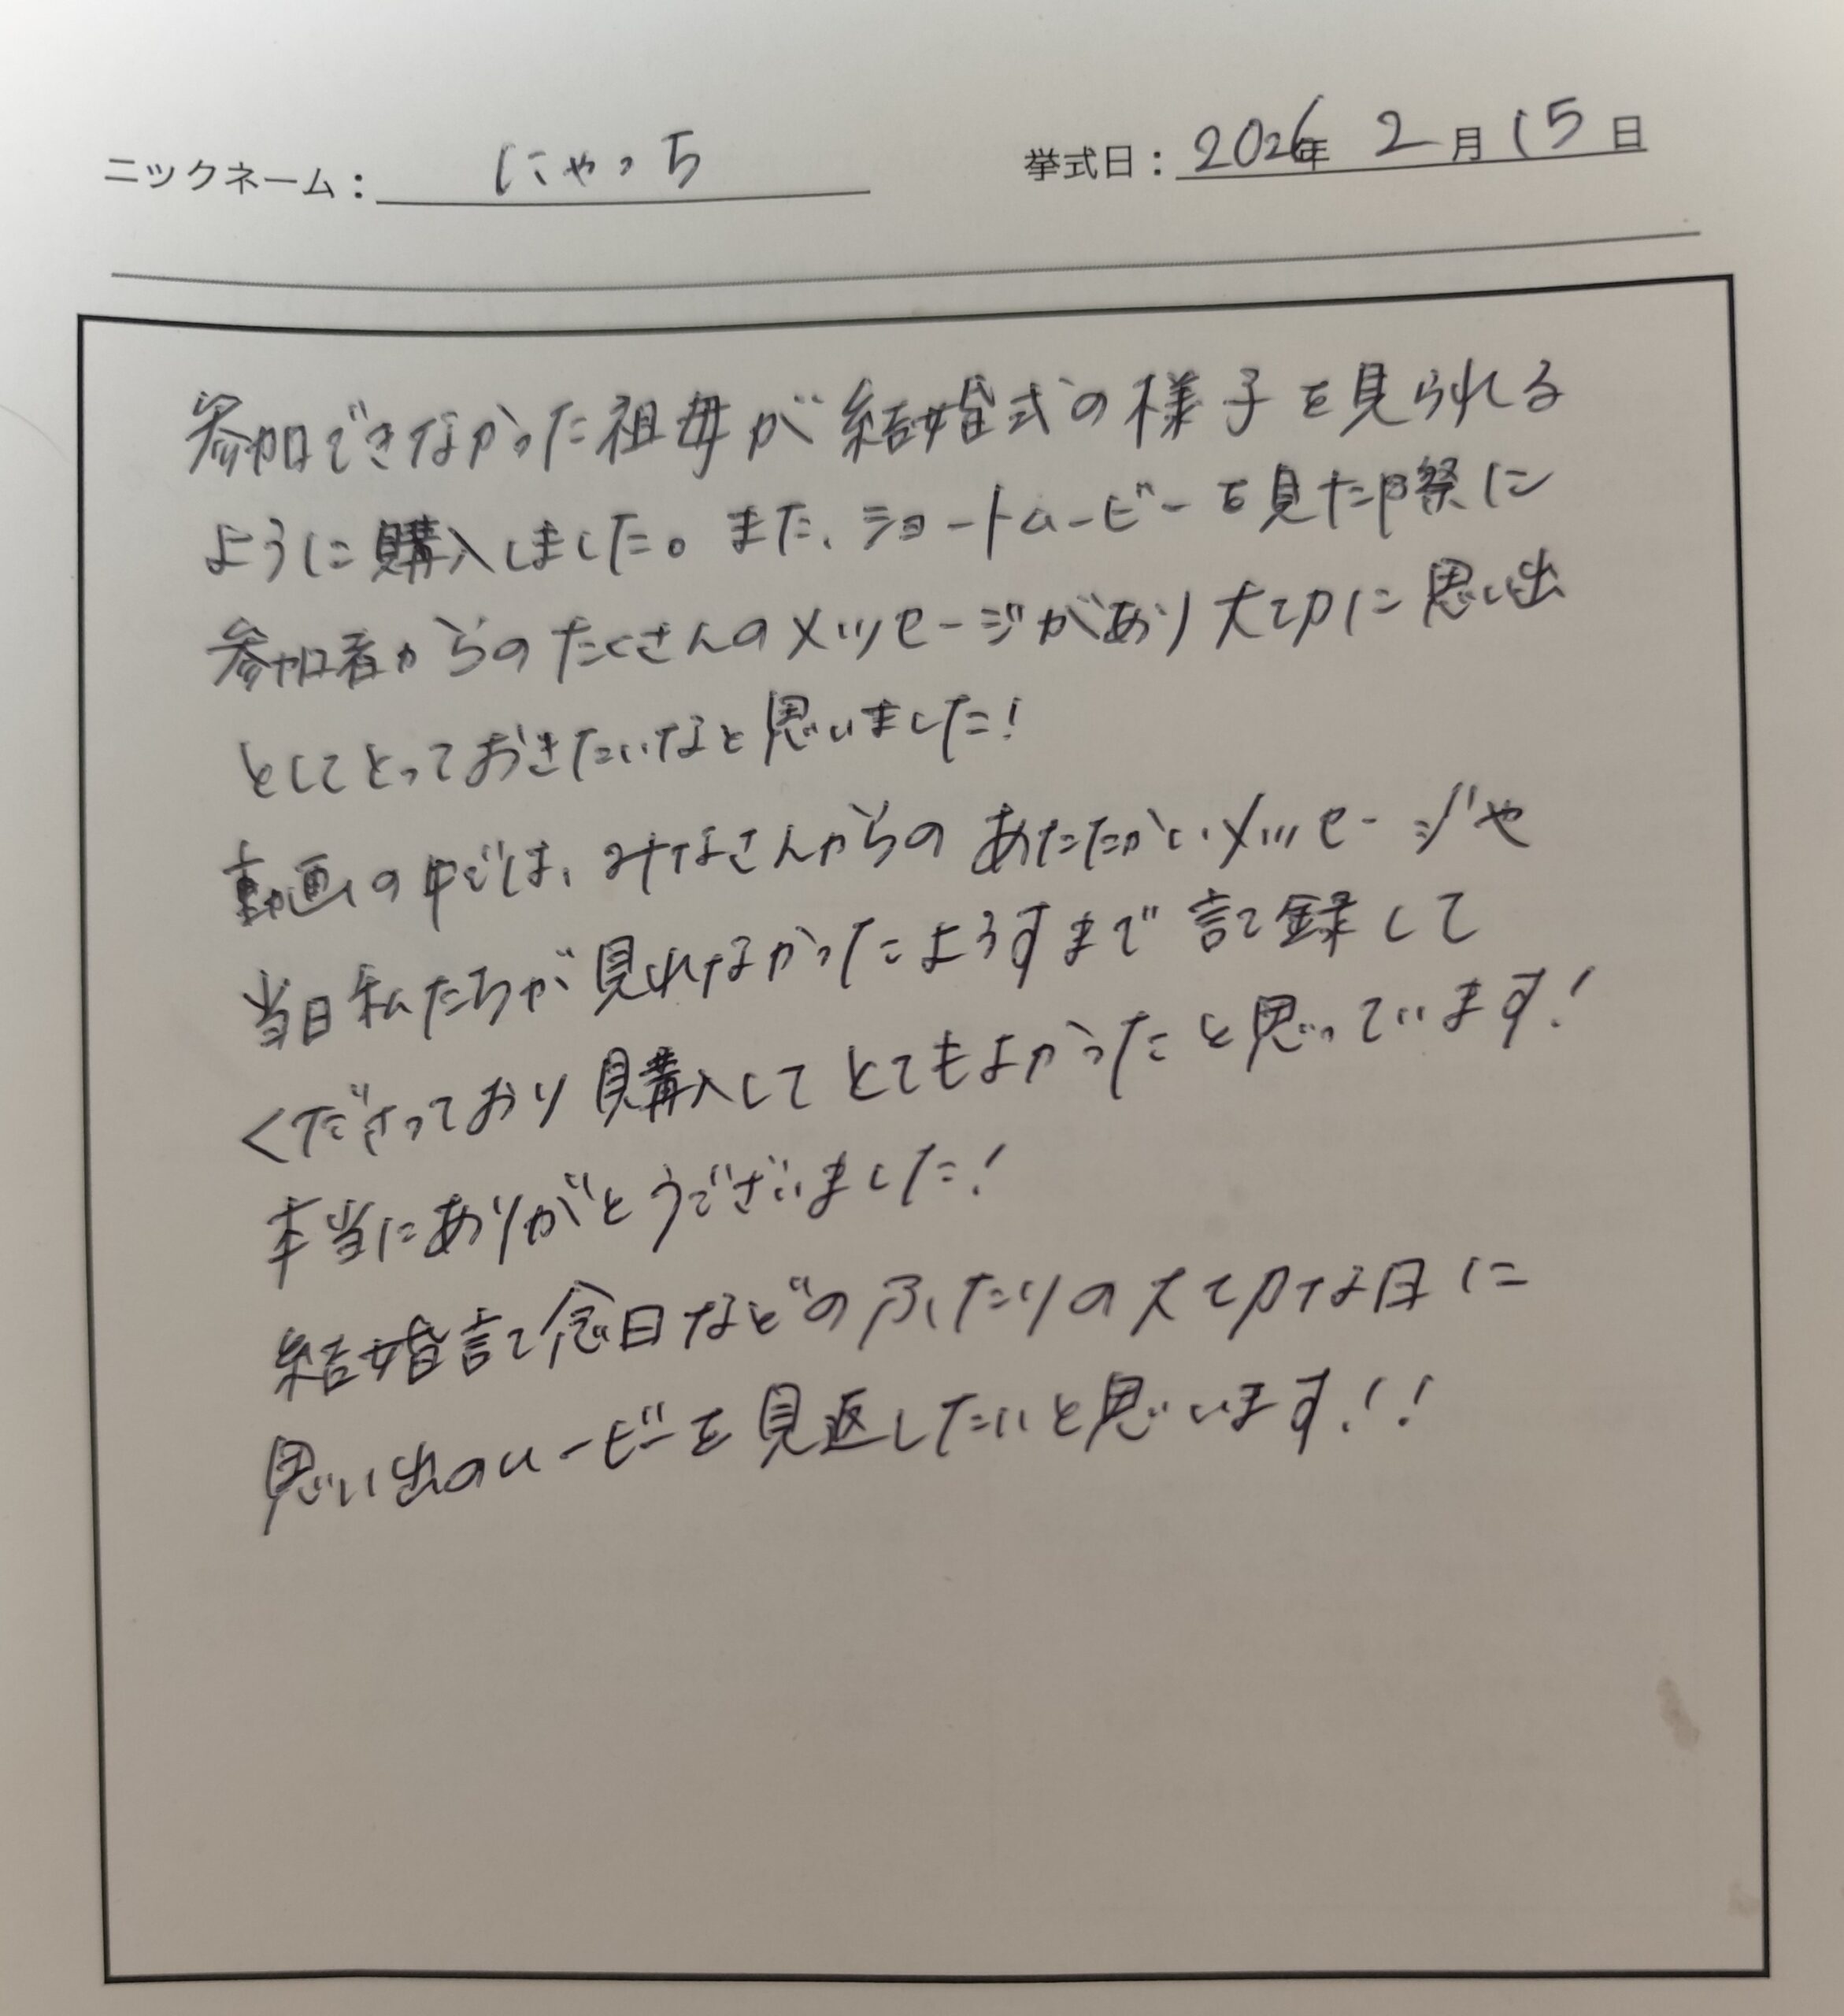 ニックネーム： にゃっち 挙式日： 2026年 2月 15日
参加できなかった祖母が結婚式の様子を見られる
ように購入しました。また、ショートムービーを見た際に
参加者からのたくさんのメッセージがあり大切に思い出
としてとっておきたいなと思いました!
動画の中では、みなさんからのあたたかいメッセージや
当日私たちが見れなかったようすまで記録して
くださっており購入してとてもよかったと思っています!
本当にありがとうございました!
結婚記念日などのふたりの大切な日に
思い出のムービーを見返したいと思います!!